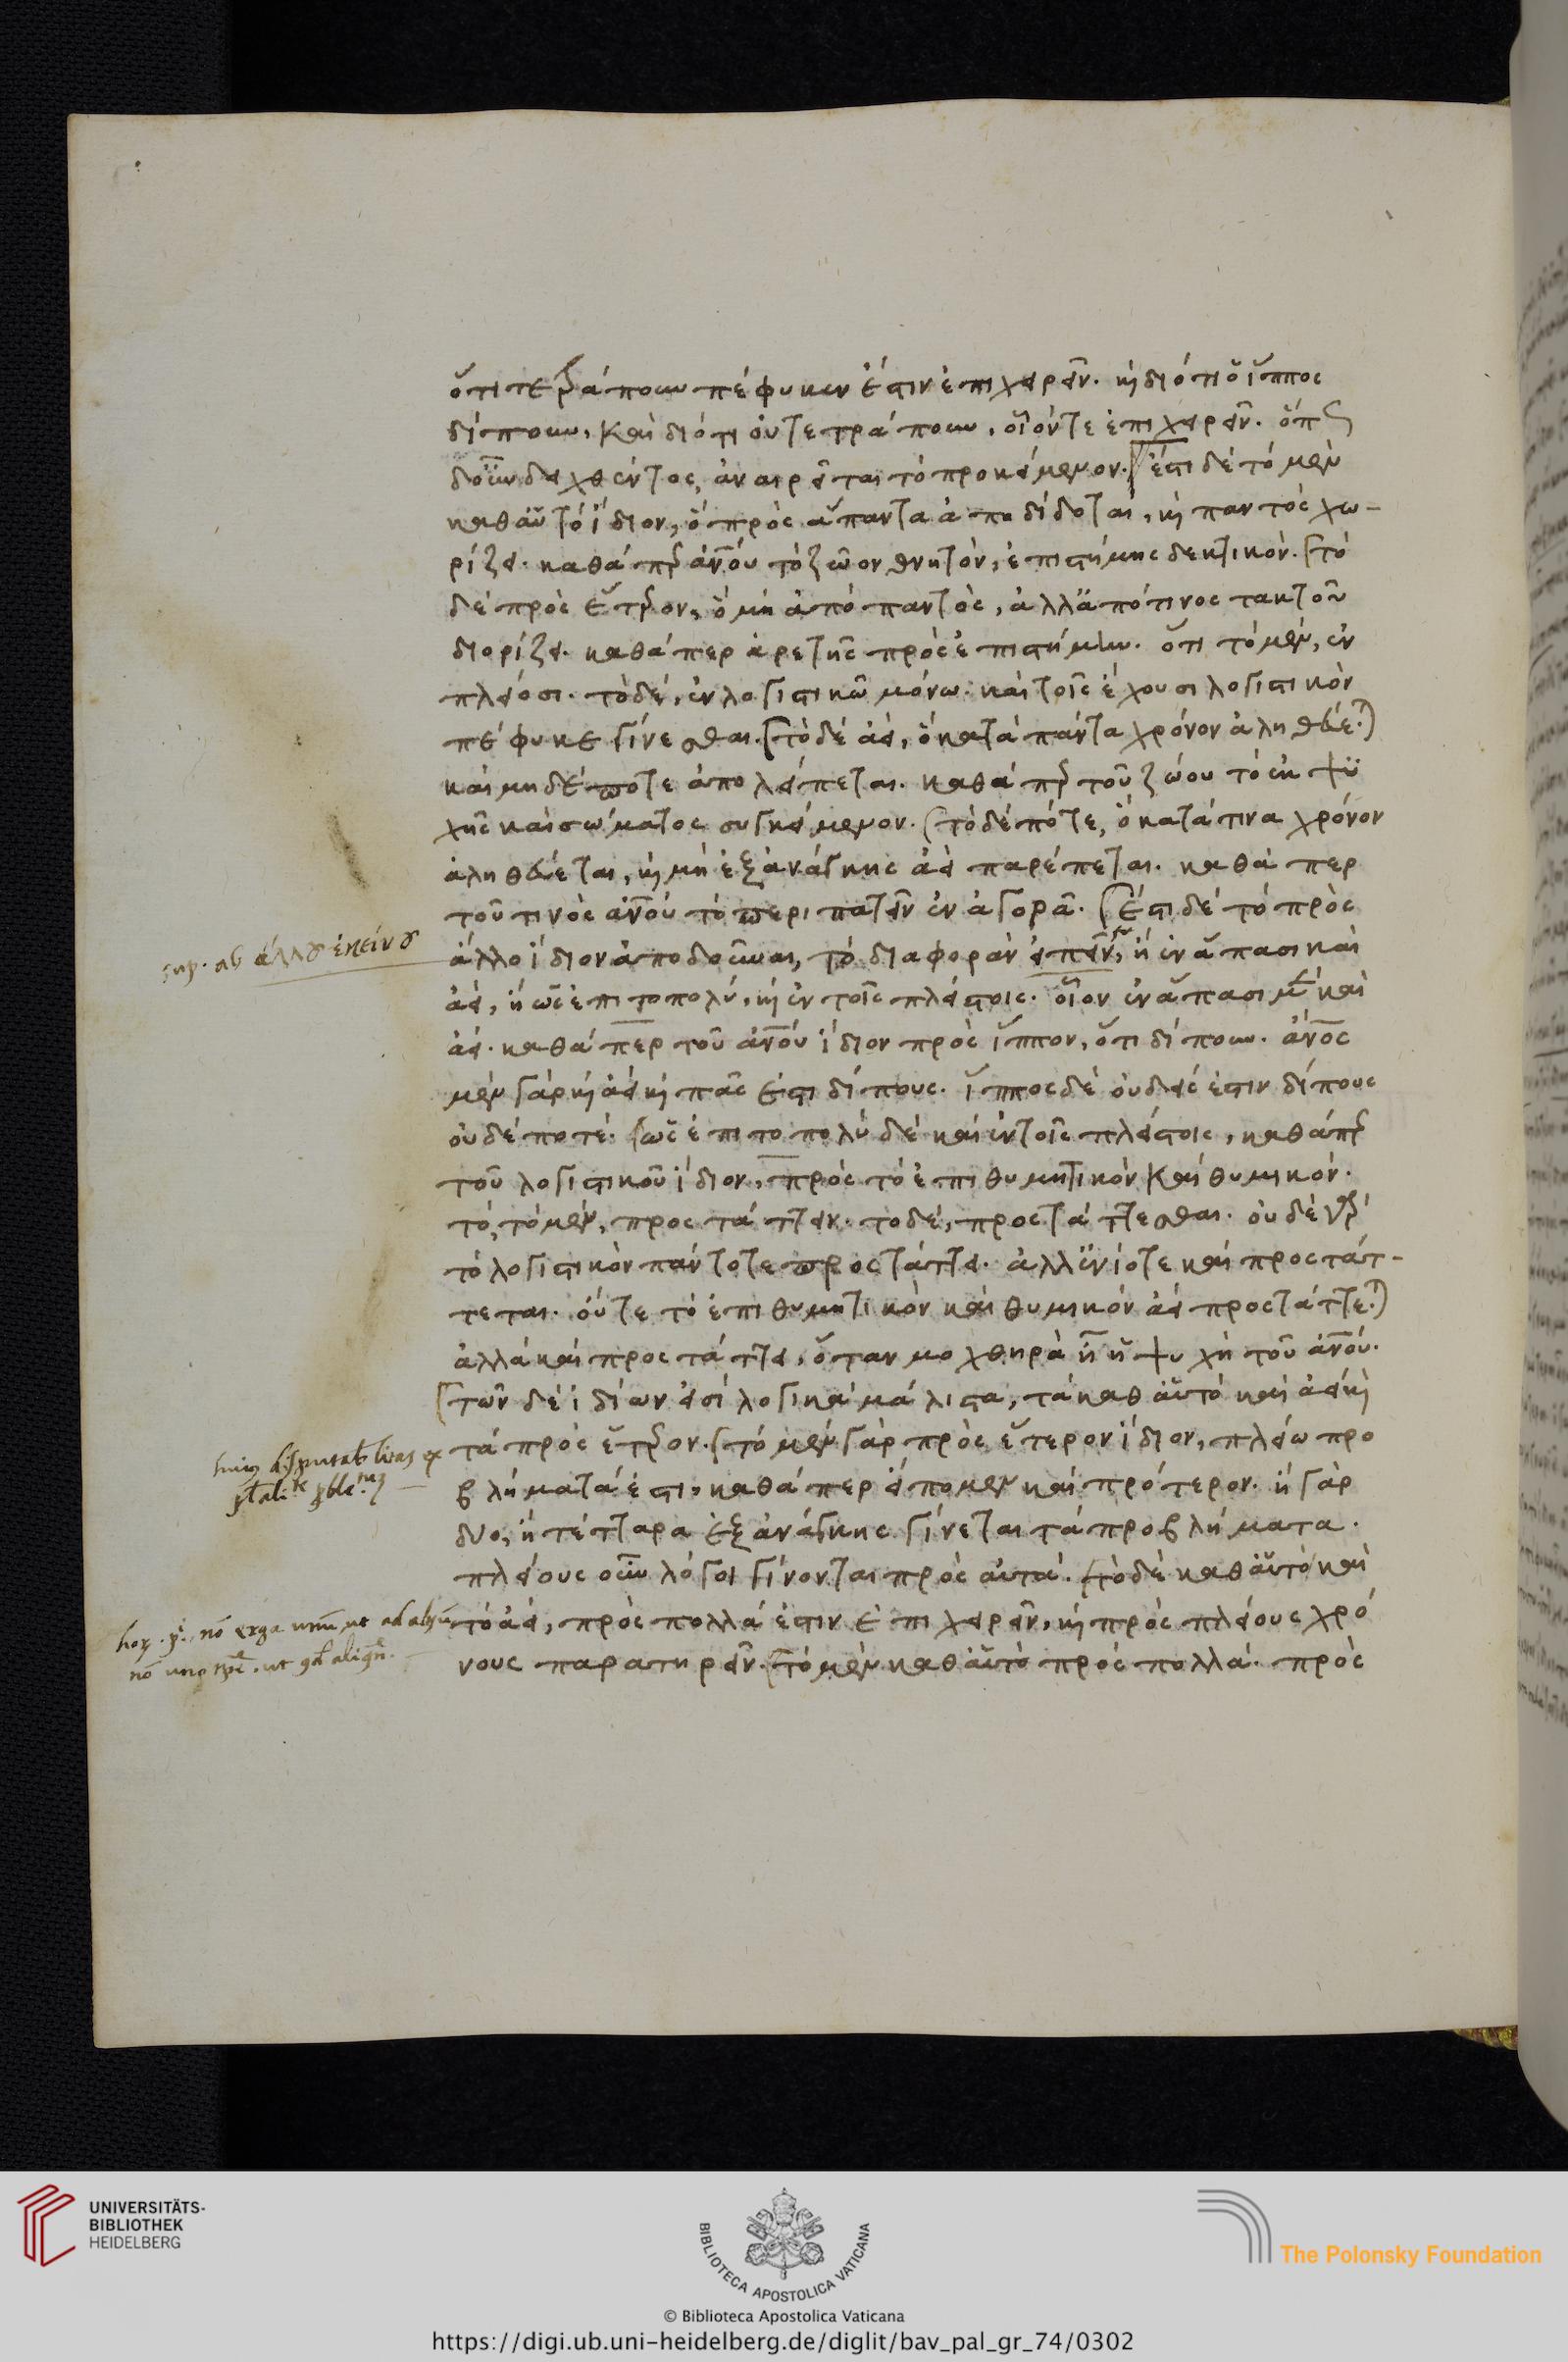 ὅτι τετράπουν πέφυκεν ἔστιν ἐπιχειρεῖν. κ̀ διότι ὁ ἵππος
δίπουν, καὶ διότι οὐ τετράπουν, οἷόν τε ἐπιχειρεῖν. ὁπο
δοῦν δειχθέντος, ἀναιρεῖται τὸ προκείμενον. ἔστι δὲ τὸ μὲν
καθ' αὑτὸ ἴδιον, ὃ πρὸς ἅπαντα ἀποδίδοται, κ̀ παντὸς χω-
ρίζει. καθάπερ ἀνου τὸ ζῶον θνητὸν, ἐπιστήμης δεκτικόν. τὸ
δὲ πρὸς ἕτερον, ὃ μὴ ἀπὸ παντὸς, ἀλλ' ἀπό τινος τακτοῦ
διορίζει. καθάπερ ἀρετῆς πρὸς ἐπιστήμην. ὅτι τὸ μὲν, ἐν
πλείοσι. τὸ δέ, ἐν λογιστικῶ μόνω. καὶ τοῖς ἔχουσι λογιστικὸν
πέφυκε γίνεσθαι. τὸ δὲ ἀεί, ὃ κατὰ πάντα χρόνον ἀληθεύεται
καὶ μηδέποτε ἀπολείπεται. καθάπερ τοῦ ζώου τὸ ἐκ ψυ
χῆς καὶ σώματος συγκείμενον. τὸ δὲ πότε, ὃ κατά τινα χρόνον
ἀληθεύεται, κ̀ μὴ ἐξ ἀνάγκης ἀεὶ παρέπεται. καθάπερ
τοῦ τινὸς ἀνου τὸ περιπατεῖν ἐν ἀγορᾶ. ἔστι δὲ τὸ πρὸς
sup. ab ἄλλου ἐκείνου
ἄλλο ἴδιον ἀποδοῦναι, τὸ διαφορὰν εἰπεῖν, ἢ ἐν ἅπασι καὶ
ἀεί, ἢ ὡς ἐπιτοπολύ, κ̀ ἐν τοῖς πλείστοις. οἷον ἐν ἅπασι μὲν καὶ
ἀεί. καθάπερ τοῦ ἀνου ἴδιον πρὸς ἵππον, ὅτι δίπουν. ἀνος
μὲν γὰρ κ̀ ἀεὶ κ̀ πᾶς ἐστι δίπους. ἵππος δὲ οὐδείς ἐστιν δίπους
οὐδέποτε. ὡς ἐπιτοπολὺ δὲ καὶ ἐν τοῖς πλείστοις, καθάπερ
τοῦ λογιστικοῦ ἴδιον, πρὸς τὸ ἐπιθυμητικὸν καὶ θυμικόν.
τὸ, τὸ μὲν, προστάττειν. τὸ δέ, προστάττεσθαι. οὐδὲ γὰρ
τὸ λογιστικὸν πάντοτε προστάττει. ἀλλ' ἐνίοτε καὶ προστάτ-
τεται. οὔτε τὸ ἐπιθυμητικὸν καὶ θυμικόν ἀεὶ προστάττεται
ἀλλὰ καὶ προστάττει, ὅταν μοχθηρὰ ἦ ἡ ψυχὴ τοῦ ἀνου.
τῶν δὲ ἰδίων εἰσὶ λογικὰ μάλιστα, τὰ καθ' αὑτὸ καὶ ἀεὶ κ̀
τὰ πρὸς ἕτερον. τὸ μὲν γὰρ πρὸς ἕτερον ἴδιον, πλείω προ
βλήματά ἐστι, καθάπερ εἴπομεν καὶ πρότερον. ἢ γὰρ
δύο, ἢ τέτταρα ἐξ ἀνάγκης γίνεται τὰ προβλήματα.
πλείους οὖν λόγοι γίνονται πρὸς αὐτά. τὸ δὲ καθ' αὑτὸ καὶ
τὸ ἀεί, πρὸς πολλά ἐστιν ἐπιχειρεῖν, κ̀ πρὸς πλείους χρό
νους παρατηρεῖν. τὸ μὲν καθ' αὑτὸ πρὸς πολλά. πρὸς
UNIVERSITÄTS-
BIBLIOTHEK
HEIDELBERG
BIBLIOTECA APOSTOLICA VATICANA
The Polonsky Foundation
© Biblioteca Apostolica Vaticana
https://digi.ub.uni-heidelberg.de/diglit/bav_pal_gr_74/0302